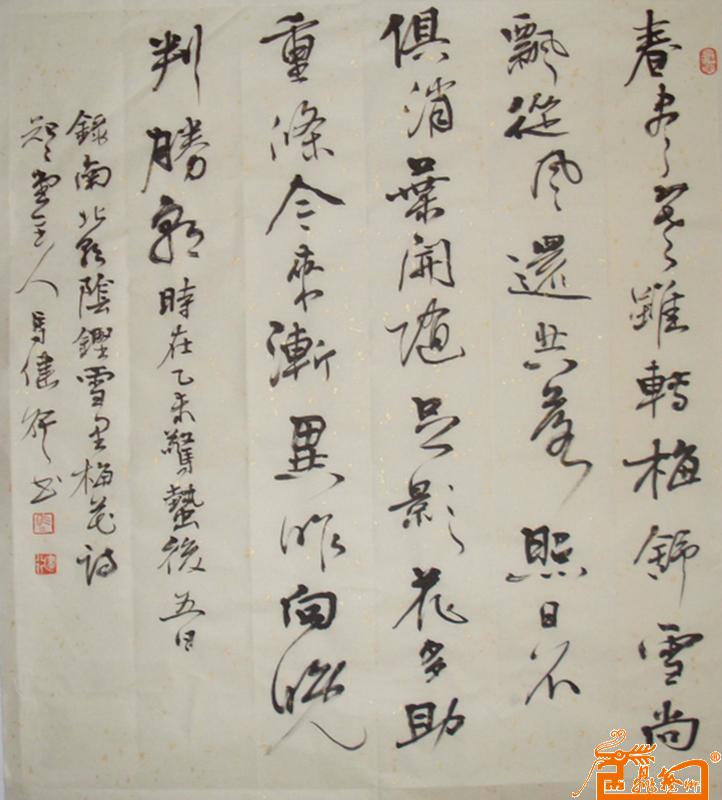 春寒雖轉梅舒雪尚
飄從風還共落照日不
俱消葉開隨足影花多助
重條今來漸異昨向晚
判勝朝時在乙未驚蟄後五日
錄南北朝陰鏗雪里梅花詩
堂主人馬健書